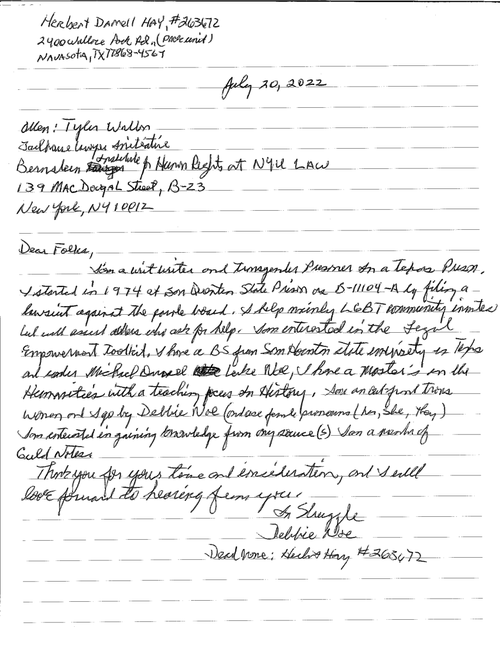 Herbert Darrell HAY, #263672
2400 Wallace Pack Rd., (Pack unit)
NAVASOTA, TX 77868-4567
July 20, 2022
Atten: Tyler Walton
Jailhouse Lawyer Initiative
Bernstein Institute for Human Rights at NYU LAW
139 MACDougAL Street, B-23
New York, NY 10012
Dear Folks,
I am a writ writer and transgender Prisoner in a Texas Prison.
I started in 1974 at San Quentin State Prison as B-11104-A by filing a
lawsuit against the parole board. I help mainly LGBT community inmates
but will assist others who ask for help. I am interested in the Legal
Empowerment Toolkit. I have a BS from Sam Houston State University in Texas
and under Michael Lake Noe, I have a Master's in the
Humanities with a teaching focus in History. I am an out-front trans
women and I go by Debbie Noe (and use female pronouns (her, She, They)
I am interested in gaining knowledge from any source(s) I am a member of
Guild Notes.
Thank you for your time and consideration, and I will
look forward to hearing from you.
In Struggle
Debbie Noe
Dead name: Herbert Hay #263672